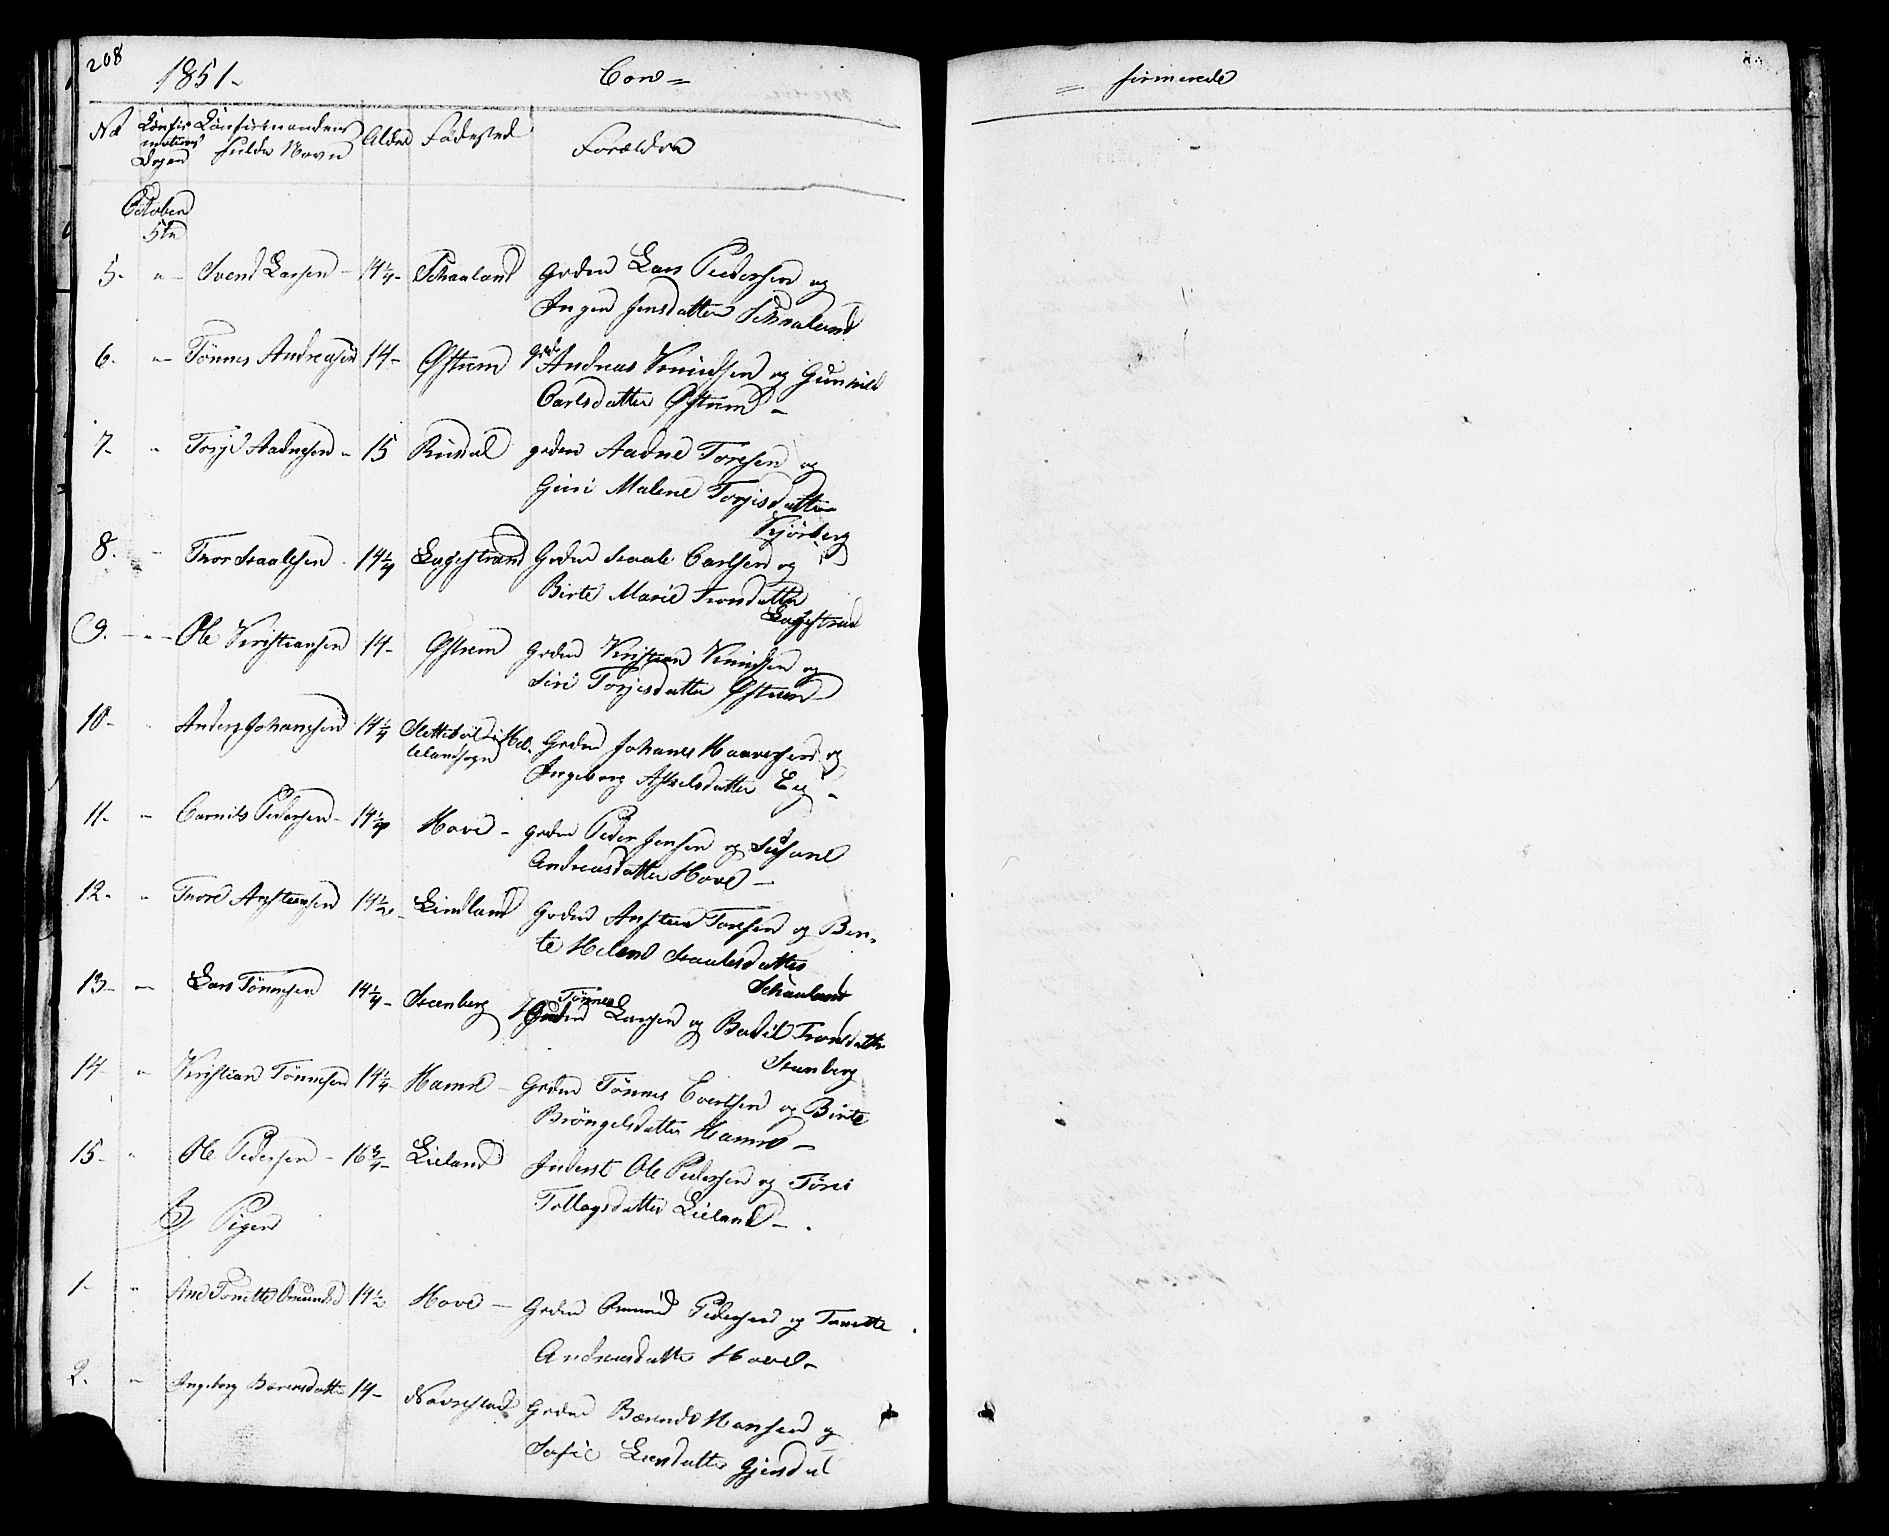 208
1851-
Con=
= firmerede
No Confirmations Dagen Confirmandens fulde Navn Alder Fødested Forældre
October
5te
5. " Svend Larsen - 14 1/4 - Schaaland grdm Lars Pedersen og
Inger Jensdatter Schaaland
6. " Tønnes Andreassen 14 - Østrem grdm Andreas Knudsen og Gunhild
Carlsdatter Østrem -
7. " Torjs Aadnesen - 15 Rusdal grdm Aadne Toresen og
Guri Malene Torjisdatter
Kjørberg
8. Thor Staalesen 14 1/4 Lagestrand Grdm Staale Carlsen og
Birte Marie Thorsdatter
Lagestrand
9. " Ole Kristiansen 14 - Østrem Grdm Kristian Knudsen og
Siri Torjesdatter Østrem
10 - " Anders Johannesen 14 1/4 Slettebøe i Hel-
lelandsogn Grdm Johanes Haaversen og
Ingeborg Axelsdatter Eeg -
11. " Cornils Pedersen - 14 1/4 Hove - grdm Peder Jensen og Susane
Andreasdatter Hove -
12. " Thore Ansteensen 14 1/2 Lindland Grdm Ansteen Toresen og Ber-
te Helene Staalesdatter
Schaaland
13 - " Lars Tønnesen 14 1/4 - Steenberg Grdm Tønnes Larsen og Bodil Thorsdatter
Steenberg
14 - " Kristian Tønnesen 14 1/4 Hamre - Grdm Tønnes Evertsen og Birte
Brøngelsdatter Hamre -
15 - " Ole Pedersen - 16 3/4 - Lieland Inderst Ole Pedersen og Tøri
Tollagsdatter Lieland -
B) Piger
1 - " Ane Tonette Omundsd 14 1/2 Hove - Grdm Omund Pedersen og Tonette
Andreasdatter Hove -
2. " Ingeborg Bærensdatter 14 - Navrestad Grdm Bærend Hansen og
Sofie Larsdatter Gjersdal